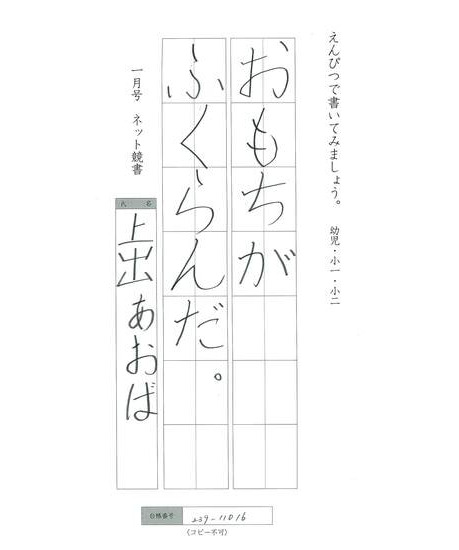 えんぴつで書いてみましょう。 幼児・小一・小二
おもちが
ふくらんだ。
一月号 ネット競書
氏名
上出あおば
台帳番号 239-11016
(コピー不可)